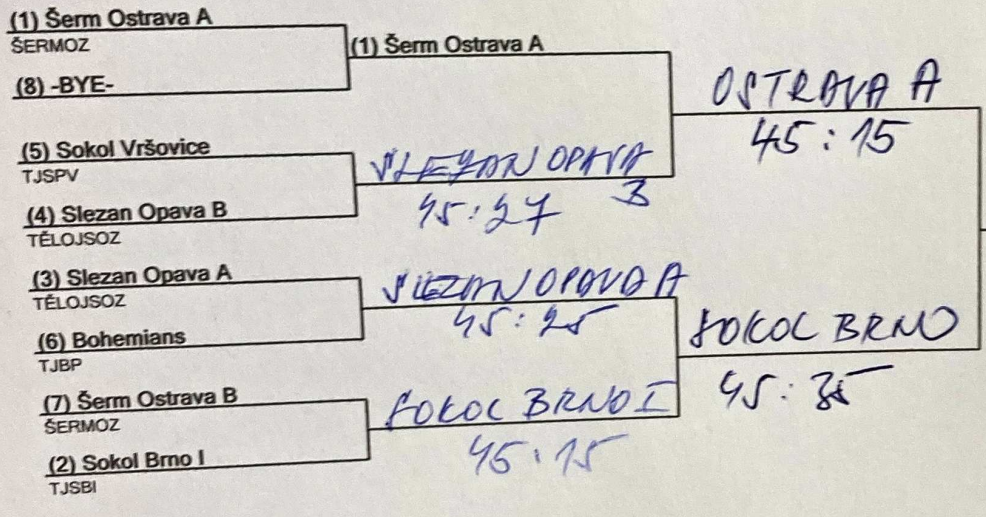 (1) Šerm Ostrava A
ŠERMOZ
(8) -BYE-
(5) Sokol Vršovice
TJSPV
(4) Slezan Opava B
TĚLOJSOZ
(3) Slezan Opava A
TĚLOJSOZ
(6) Bohemians
TJBP
(7) Šerm Ostrava B
ŠERMOZ
(2) Sokol Brno I
TJSBI
(1) Šerm Ostrava A
SLEZAN OPAVA
B
45:27
SLEZAN OPAVA A
45:25
SOKOL BRNO I
45:15
OSTRAVA A
45:15
SOKOL BRNO
45:35